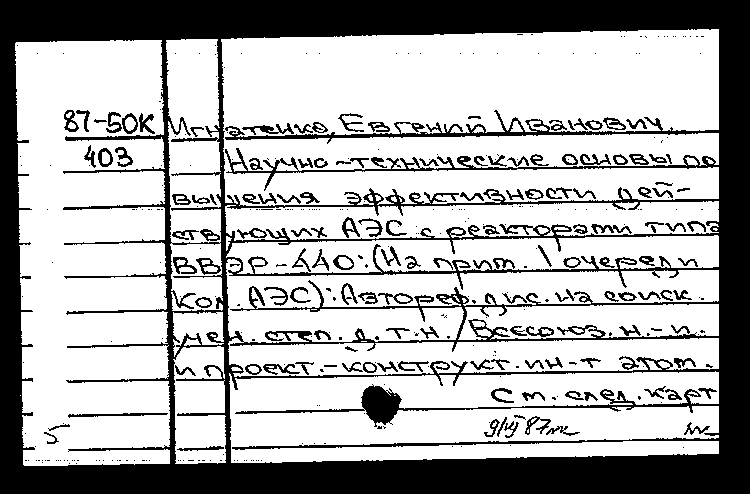 87-50К Игнатенко, Евгений Иванович.
403 Научно-технические основы по
вышения эффективности дей-
ствующих АЭС с реакторами типа
ВВЭР-440: (На прим. 1 очереди
Кол. АЭС): Автореф. дис. на соиск.
учен. степ. д.т.н. / Всесоюз. н.-и.
и проект.-конструкт. ин-т атом.
См. след. карт
5